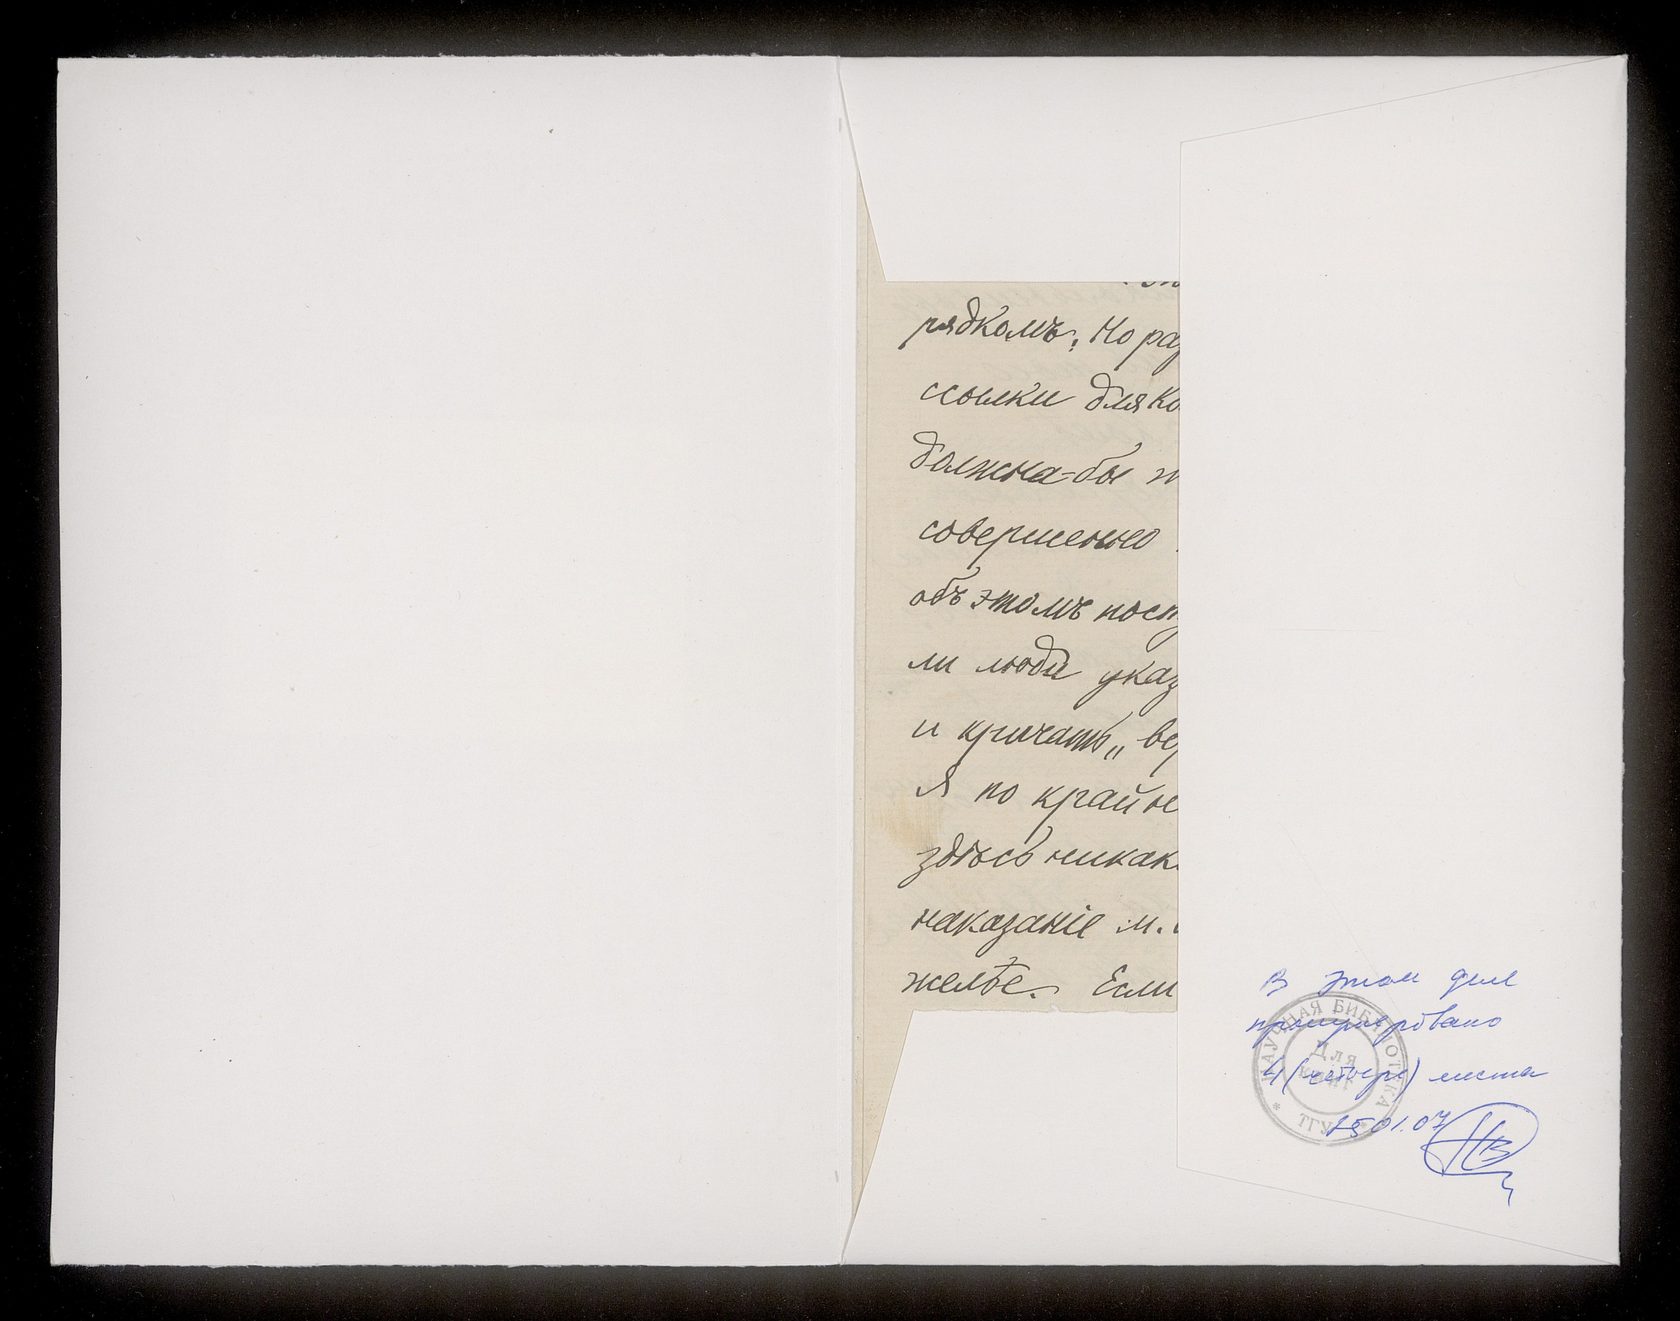 рядкомъ. Но раз
ссылки для ко
должна-бы
совершенно
объ этомъ пост
ли люди указ
и кричать „ вер
Я по крайне
здѣсь никак
наказаніе м.
желѣе. Если
В этом деле
пронумеровано
4 (четыре) листа
15.01.07
НАУЧНАЯ БИБЛИОТЕКА
Для
книг
ТГУ